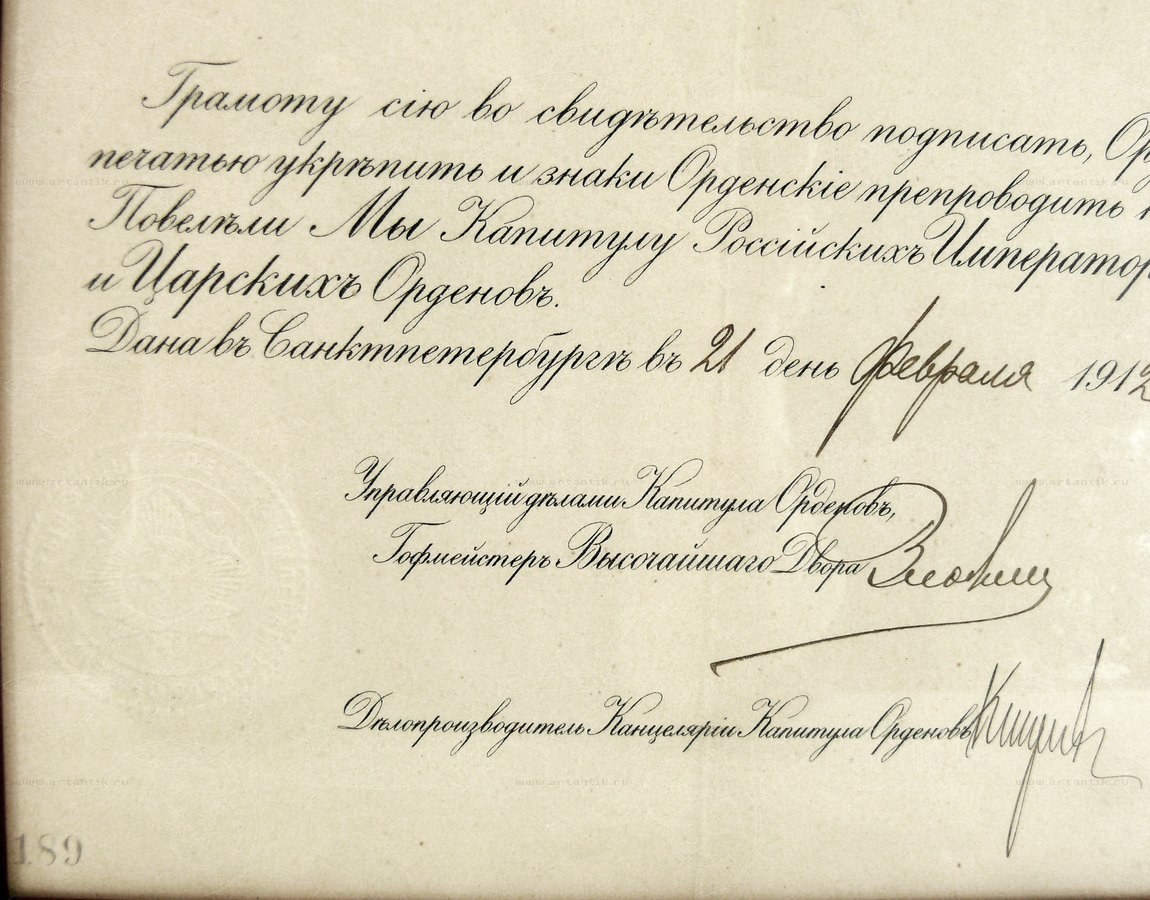 Грамоту сію во свидѣтельство подписать, Ор
печатью укрѣпить и знаки Орденскіе препроводить
Повелѣли Мы Капитулу Россійскихъ Император
и Царскихъ Орденовъ.
Дана въ Санктпетербургѣ въ 21 день февраля 1912
Управляющій дѣлами Капитула Орденовъ,
Гофмейстеръ Высочайшаго Двора
Дѣлопроизводитель Канцеляріи Капитула Орденовъ
189
www.artantik.ru